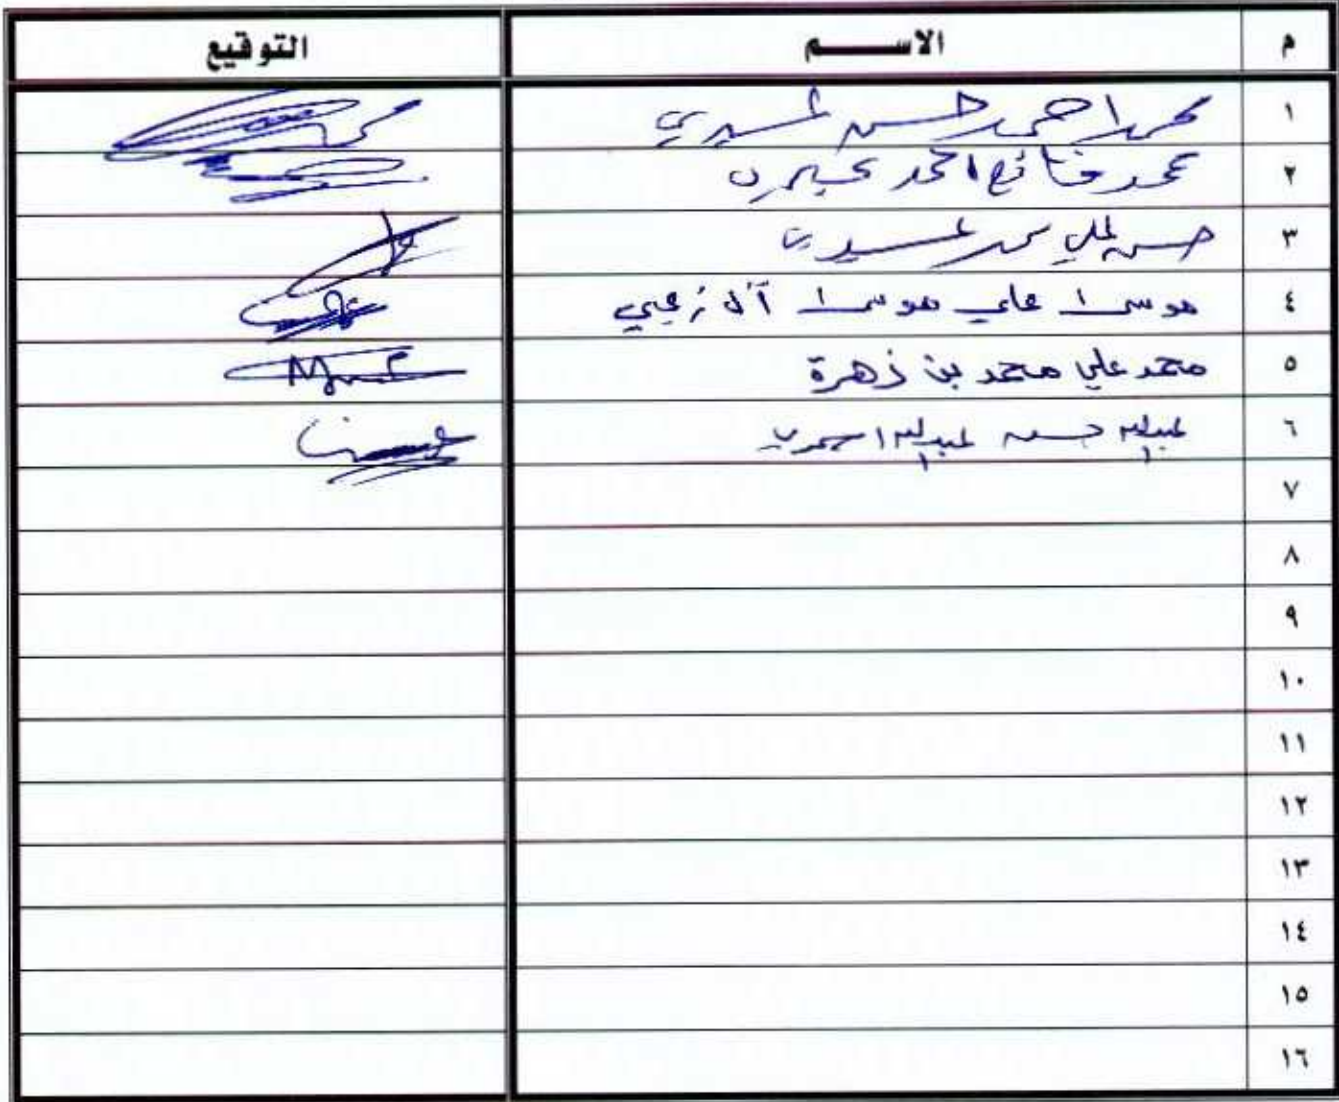 م الاســـم التوقيع
١ محمد احمد حسن عسيري
٢ محمد فائع احمد عسيري
٣ حسن علي محمد عسيري
٤ موسى علي موسى آل زعبي
٥ محمد علي محمد بن زهرة
٦ عبدالله حسن عبدالله
٧
٨
٩
١٠
١١
١٢
١٣
١٤
١٥
١٦